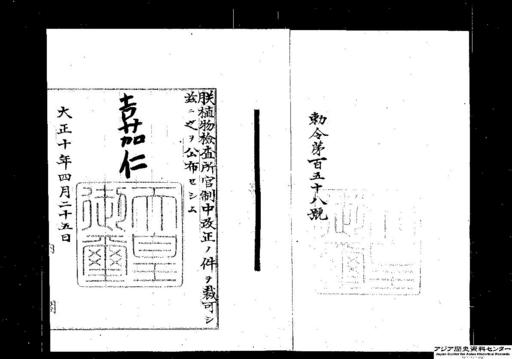 勅令第百五十八號
朕植物檢査所官制中改正ノ件ヲ裁可シ
玆ニ之ヲ公布セシム
嘉仁
天皇御璽
大正十年四月二十五日
アジア歴史資料センター
Japan Center for Asian Historical Records